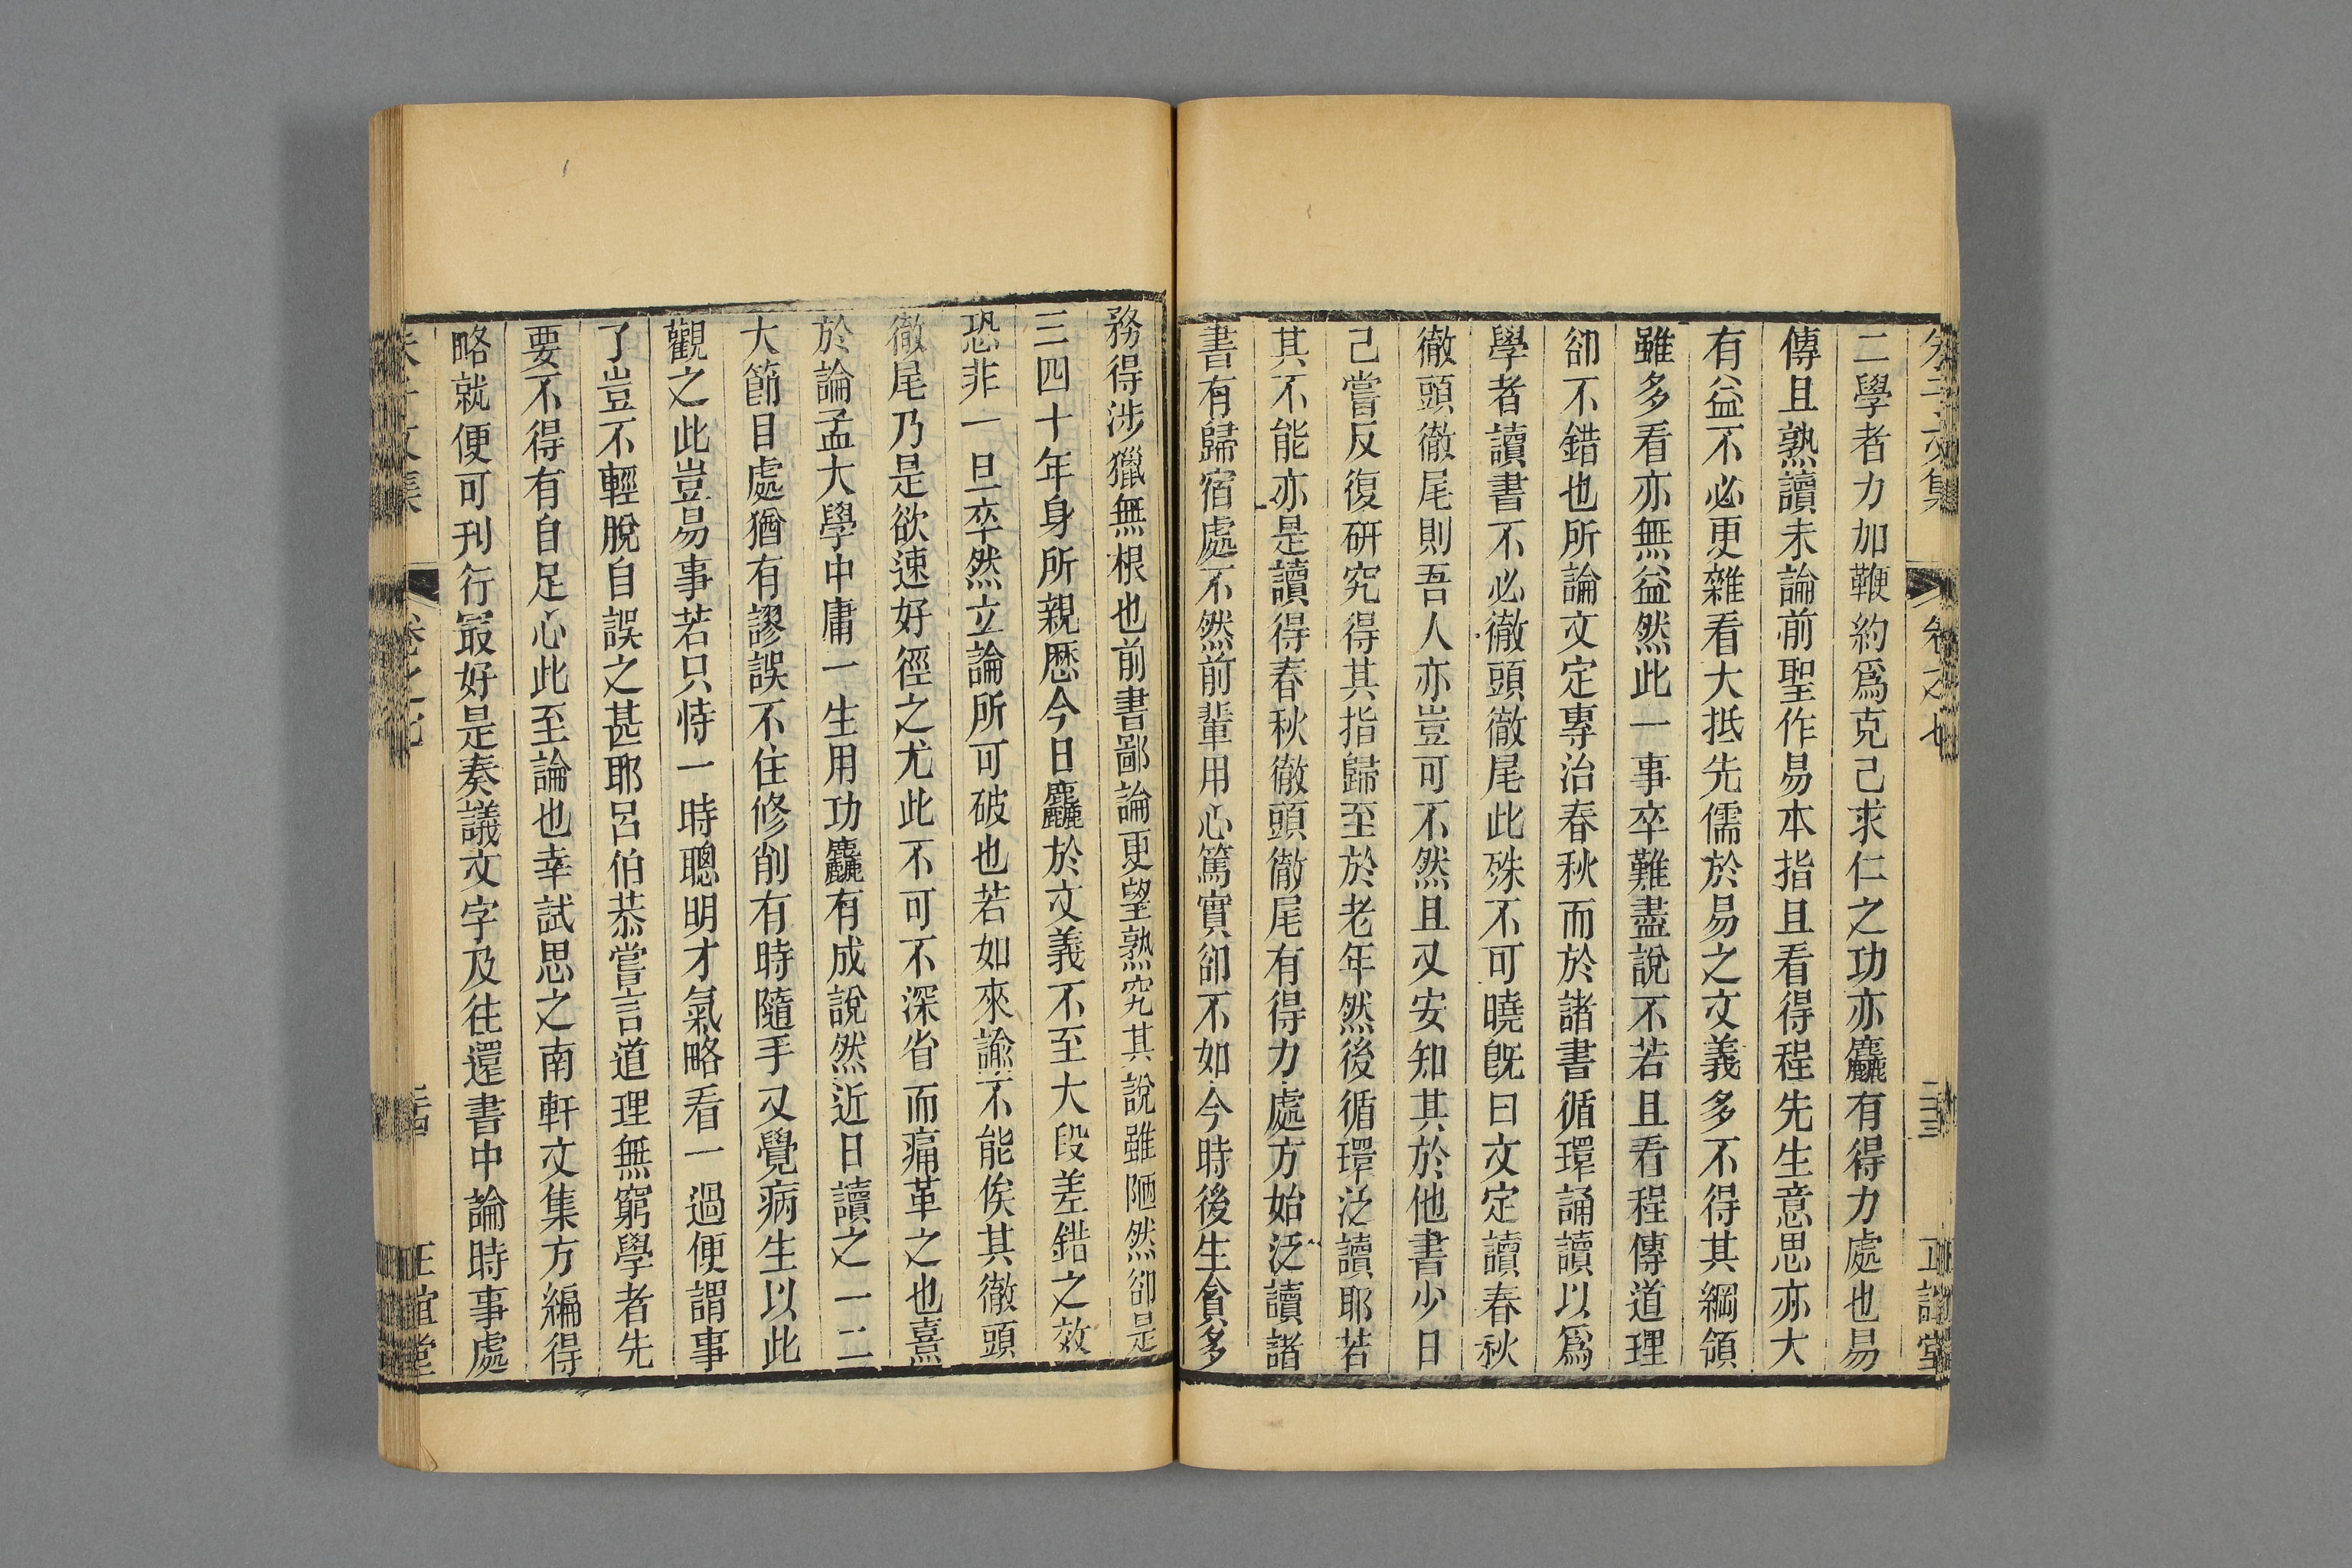 二學者力加鞭約爲克己求仁之功亦麤有得力處也易
傳且熟讀未論前聖作易本指且看得程先生意思亦大
有益不必更雜看大抵先儒於易之文義多不得其綱領
雖多看亦無益然此一事卒難盡說不若且看程傳道理
卻不錯也所論文定專治春秋而於諸書循環誦讀以爲
學者讀書不必徹頭徹尾此殊不可曉既曰文定讀春秋
徹頭徹尾則吾人亦豈可不然且又安知其於他書少日
己嘗反復研究得其指歸至於老年然後循環泛讀耶若
其不能亦是讀得春秋徹頭徹尾有得力處方始泛讀諸
書有歸宿處不然前輩用心篤實卻不如今時後生貪多
務得涉獵無根也前書鄙論更望熟究其說雖陋然卻是
三四十年身所親歷今日麤於文義不至大段差錯之效
恐非一旦卒然立論所可破也若如來諭不能俟其徹頭
徹尾乃是欲速好徑之尤此不可不深省而痛革之也熹
於論孟大學中庸一生用功麤有成說然近日讀之一二
大節目處猶有謬誤不住修削有時隨手又覺病生以此
觀之此豈易事若只恃一時聰明才氣略看一過便謂事
了豈不輕脫自誤之甚耶呂伯恭嘗言道理無窮學者先
要不得有自足心此至論也幸試思之南軒文集方編得
略就便可刊行最好是奏議文字及往還書中論時事處